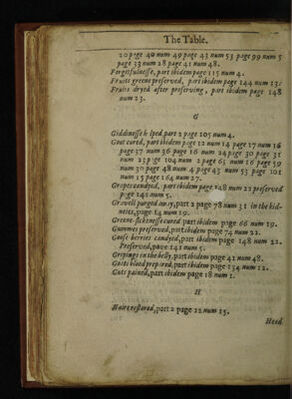 The Table.
20 page 40 num 49 page 43 num 53 page 99 num 5
page 33 num 28 page 41 num 48.
Forgetfulnesse, part ibidem page 115 num 4.
Fruits greene preserved, part ibidem page 144 num 13.
Fruits dryed after preserving, part ibidem page 148
num 23.
G
Giddinesse helped, part 2 page 105 num 4.
Gout cured, part ibidem page 12 num 14 page 17 num 16
page 37 num 36 page 16 num 24 page 30 page 31
num 21 page 104 num 2 page 65 num 16 page 59
num 30 page 48 num 4 page 43 num 53 page 101
num 15 page 164 num 27.
Grapes candyed, part ibidem page 148 num 22 preserved
page 141 num 5.
Gravell purged away, part 2 page 78 num 31 in the kid-
neies, page 14 num 19.
Greene-sicknesse cured part ibidem page 66 num 19.
Gummes preserved, part ibidem page 74 num 22.
Goose-berries candyed, part ibidem page 148 num 22.
Preserved, page 141 num 5.
Gripings in the belly, part ibidem page 41 num 48.
Goats blood prepared, part ibidem page 134 num 12.
Guts pained, part ibidem page 18 num 1.
H
Haire restored, part 2 page 22 num 15.
Head